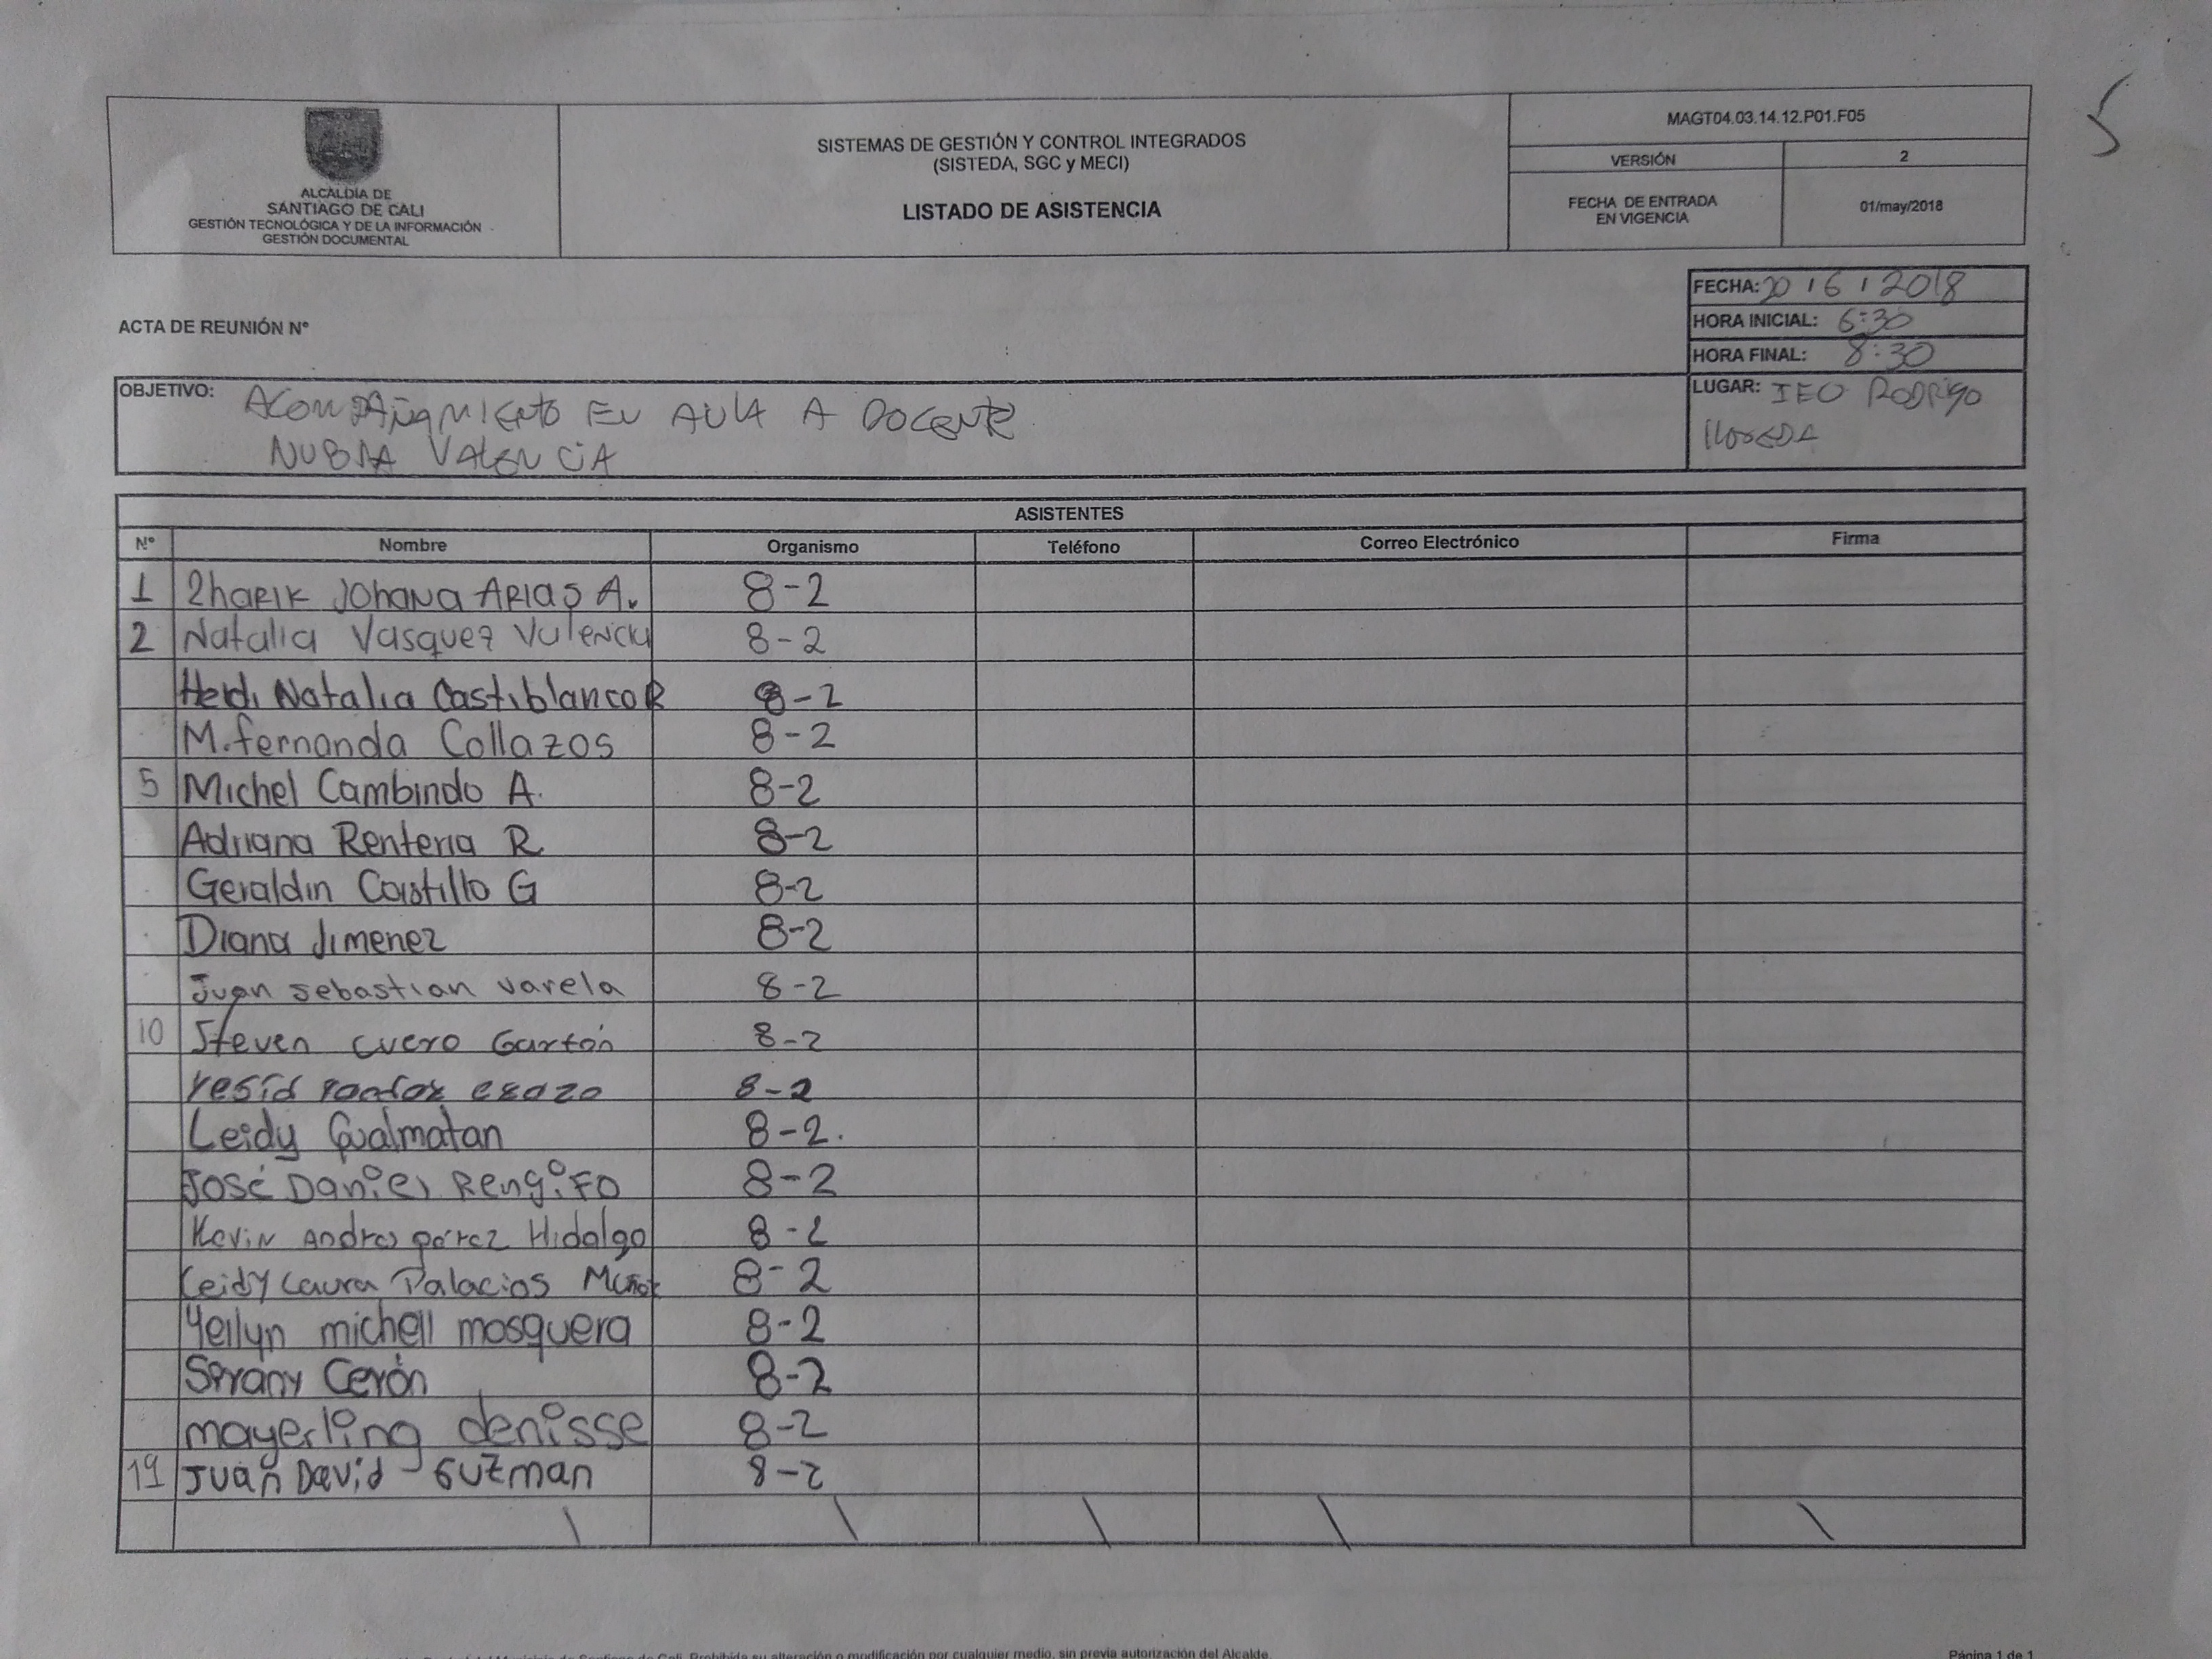 5
ALCALDÍA DE
SANTIAGO DE CALI
GESTIÓN TECNOLÓGICA Y DE LA INFORMACIÓN
GESTIÓN DOCUMENTAL
SISTEMAS DE GESTIÓN Y CONTROL INTEGRADOS
(SISTEDA, SGC y MECI)
LISTADO DE ASISTENCIA
MAGT04.03.14.12.P01.F05
VERSIÓN 2
FECHA DE ENTRADA
EN VIGENCIA
01/may/2018
ACTA DE REUNIÓN N°
FECHA: 20 / 6 / 2018
HORA INICIAL: 6:30
HORA FINAL: 8:30
OBJETIVO: ACOMPAÑAMIENTO EN AULA A DOCENTE
NUBIA VALENCIA
LUGAR: IEO RODRIGO
LLOREDA
ASISTENTES
N° Nombre Organismo Teléfono Correo Electrónico Firma
1 Zharik Johana Arias A. 8-2
2 Natalia Vasquez Valencia 8-2
Heidi Natalia Castiblanco R 8-2
M. fernanda Collazos 8-2
5 Michel Cambindo A. 8-2
Adriana Renteria R 8-2
Geraldin Castillo G 8-2
Diana Jimenez 8-2
Juan sebastian varela 8-2
10 Steven cuero Garzón 8-2
yesid 8-2
Leidy Gualmatan 8-2.
José Daniel Rengifo 8-2
Kevin Andres pérez Hidalgo 8-2
Leidy Laura Palacios Muñoz 8-2
Yeilyn michell mosquera 8-2
Cerón 8-2
mayerling denisse 8-2
19 Juan David Guzman 8-2
Prohibida su alteración o modificación por cualquier medio, sin previa autorización del Alcalde.
Página 1 de 1